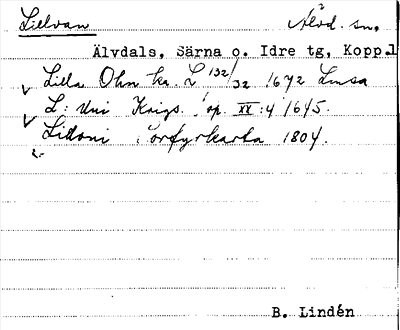 Lillvan Älvd. sn.
Älvdals, Särna o. Idre tg, Kopp.l
Lilla Ohn ka. L 132/32 1672 Lmsa
L: Uni Krigs. XX:4 1645.
Lilloni Porfyrkarta 1804.
B. Lindén